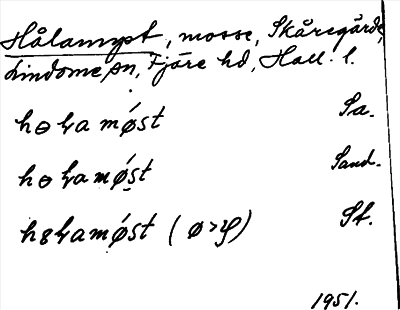 Hålamyst, mosse, Skåregärde,
Lindome sn, Fjäre hd, Hall. l.
hɵⱡa mǿst Sa.
hɵⱡa mǿst Sand.
h8ⱡamǿst (ø>ψ) St.
1951.